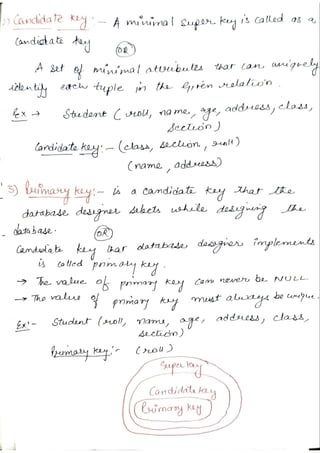 Candidate key :- A minimal super key is called as a
Candidate key
(OR)
A set of minimal attributes that can uniquely
identify each tuple in the given relation.
Ex → Student (roll, name, age, address, class,
section)
Candidate key :- (class, section, roll)
(name, address)
3) Primary key :- is a candidate key that the
database designer selects while designing the
database. (OR)
Candidate key that database designer implements
is called primary key.
→ The value of primary key can never be NULL.
→ The value of primary key must always be unique.
Ex :- Student (roll, name, age, address, class,
section)
Primary key :- (roll)
Super key
Candidate key
Primary key